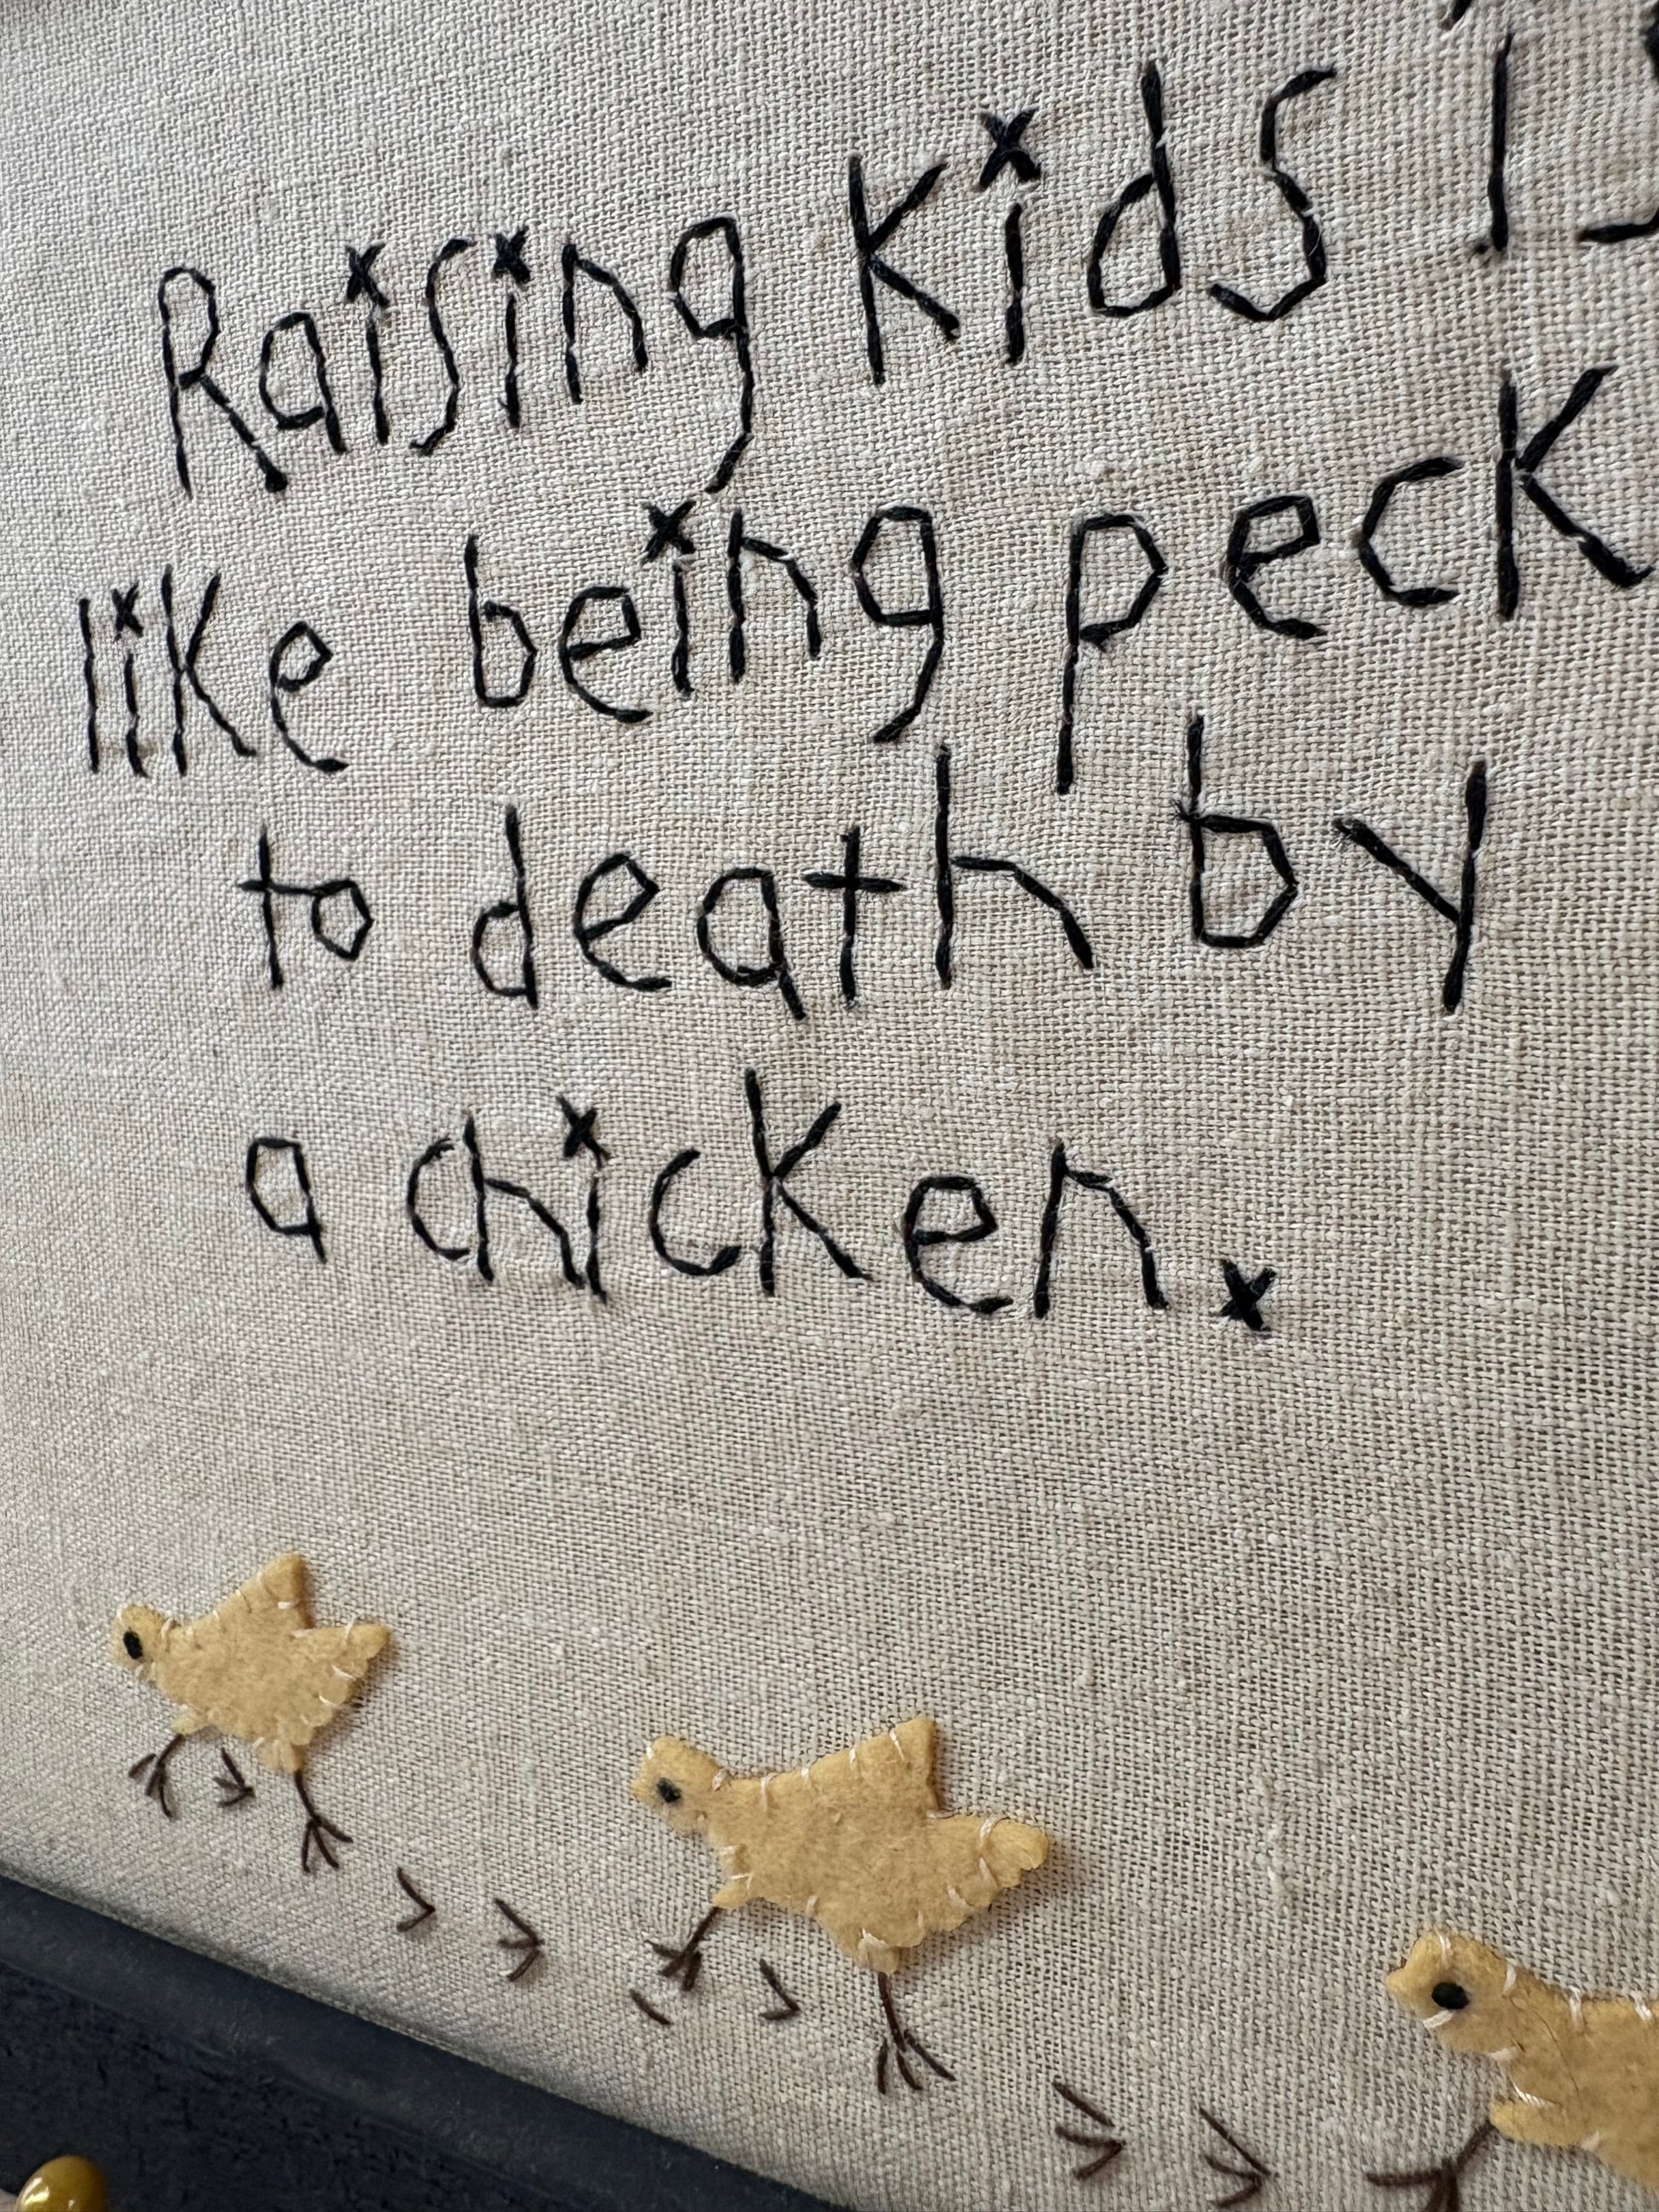 Raising kids is
like being peck
to death by
a chicken.